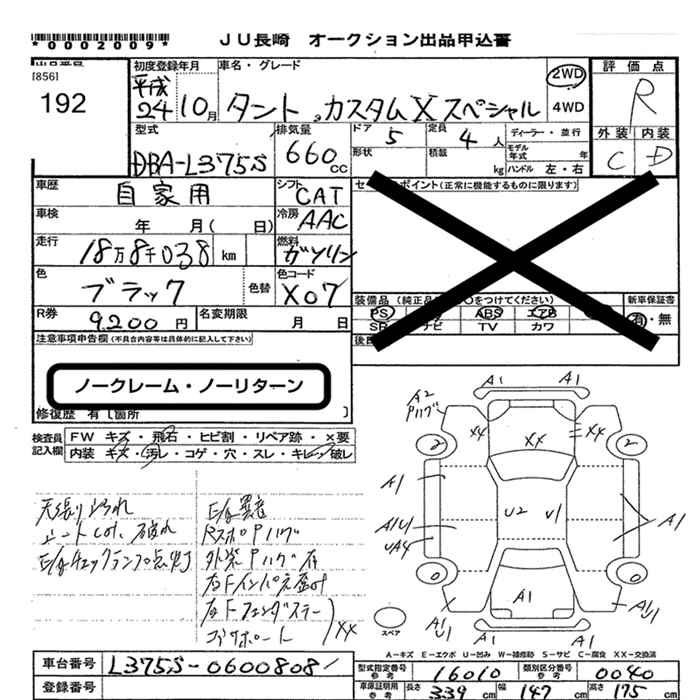 *0002009*
JU長崎 オークション出品申込書
出品番号
[856]
192
初度登録年月
平成
24 10月
車名・グレード
タント カスタムXスペシャル
2WD
4WD
評価点
R
外装 内装
C D
型式
DBA-L375S
排気量
660cc
ドア 5
定員 4人
形状
積載 kg
ディーラー・並行
モデル年式 年
ハンドル 左・右
車歴 自家用
シフト CAT
車検 年 月( 日)
冷房 AAC
走行 18万8千038 km
燃料 ガソリン
色 ブラック
色替
色コード X07
R券 9,200円
名変期限 月 日
(正常に機能するものに限ります)
装備品
PS
ABS
エアB
TV
カワ
新車保証書
有・無
注意事項申告欄(不具合内容等は具体的に記入して下さい)
ノークレーム・ノーリターン
修復歴 有[箇所 ]
検査員記入欄
FW キズ・飛石・ヒビ割・リペア跡・×要
内装 キズ・汚レ・コゲ・穴・スレ・キレ・破レ
天張り よごれ
シート こげ、破れ
E/gチェックランプ点灯
E/g異音
RスポPハゲ
外装Pハゲ有
右Fインパネ歪み
右Fフェンダステー
コアサポート
XX
A1 A1
A2
Pハゲ
XX XX
2 2
A1
A1U1
UA4
U2 U1
A1
0 0
A1
U1
A1
A1
U1
スペア
A-キズ E-エクボ U-凹み W-補修跡 S-サビ C-腐食 XX-交換済
車台番号 L375S-0600808
登録番号
型式指定番号 参考 16010
類別区分番号 参考 0040
車庫証明用 参考
長さ 339cm
幅 147cm
高さ 175cm